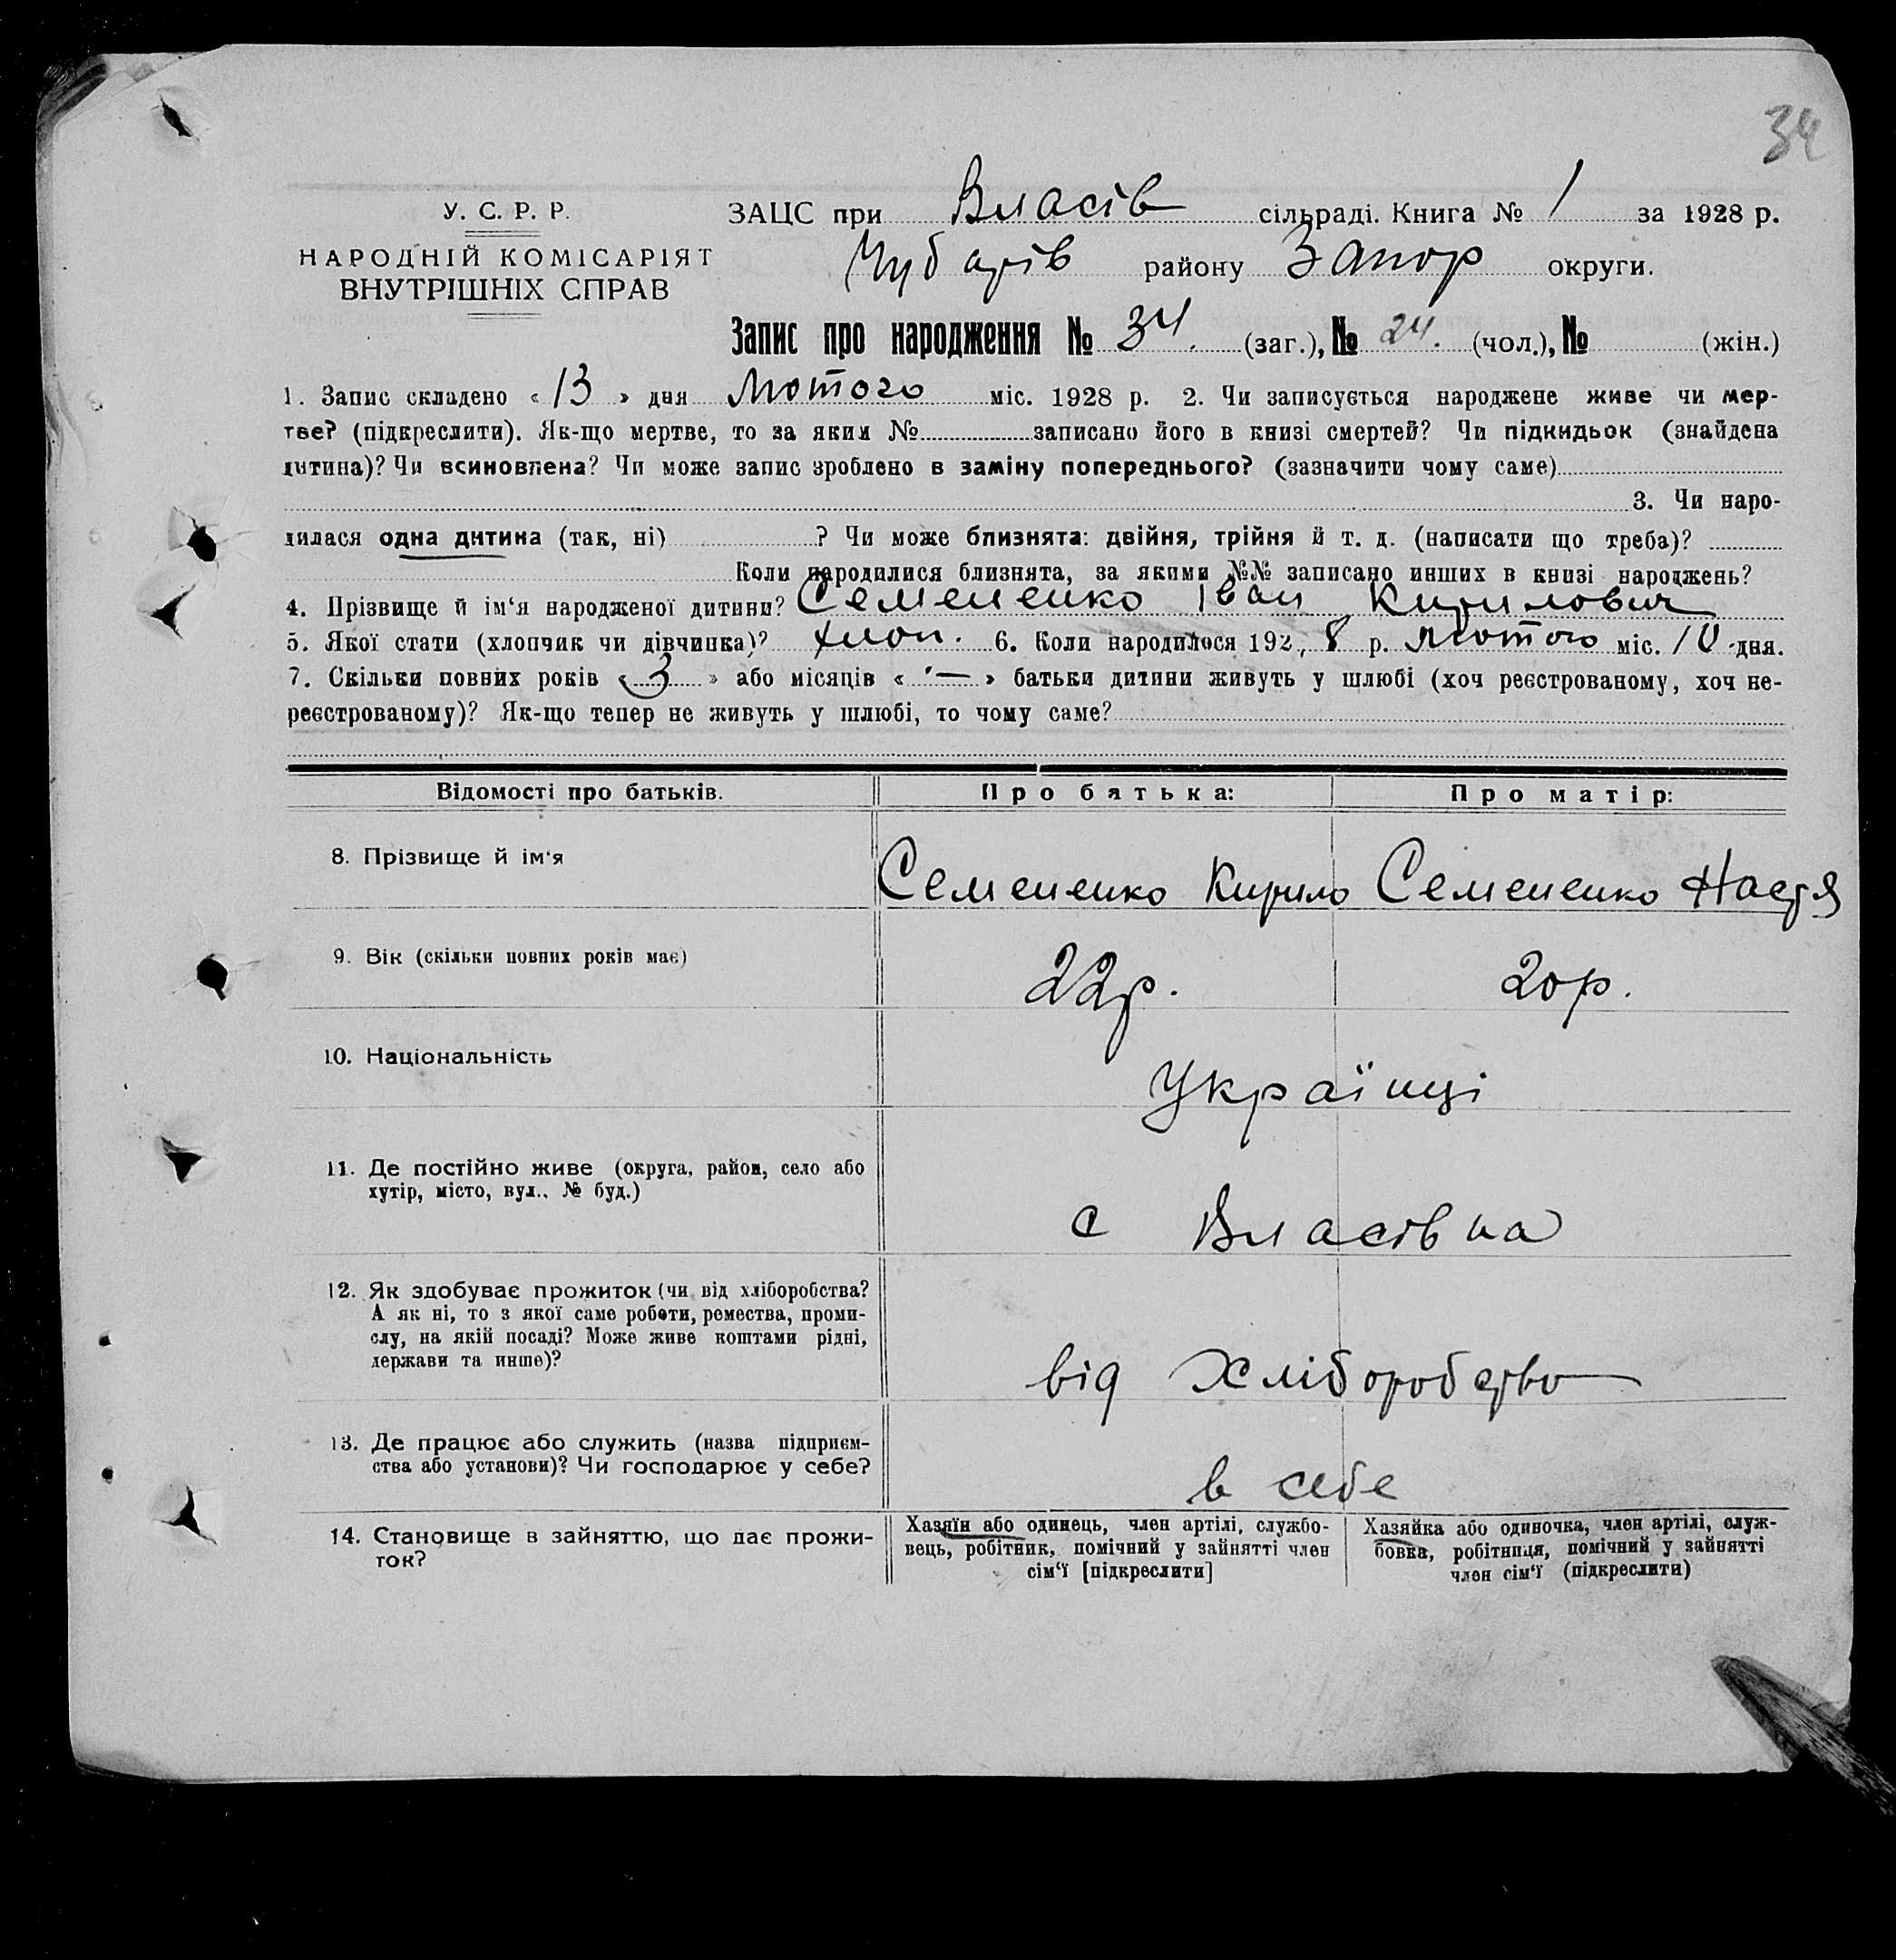 34
У. С. Р. Р.
НАРОДНІЙ КОМІСАРІЯТ
ВНУТРІШНІХ СПРАВ
ЗАЦС при Власів сільраді. Книга № 1 за 1928 р.
Чубарів району Запор округи.
Запис про народження № 34. (заг.), № 24. (чол.), № (жін.)
1. Запис складено « 13 » дня Лютого міс. 1928 р. 2. Чи записується народжене живе чи мер-
тве? (підкреслити). Як-що мертве, то за яким № записано його в книзі смертей? Чи підкидьок (знайдена
дитина)? Чи всиновлена? Чи може запис зроблено в заміну попереднього? (зазначити чому саме)
3. Чи наро-
дилася одна дитина (так, ні) ? Чи може близнята: двійня, трійня й т. д. (написати що треба)?
Коли народилися близнята, за якими №№ записано инших в книзі народжень?
4. Прізвище й ім‘я народженої дитини? Семененко Іван Кирилович
5. Якої стати (хлопчик чи дівчинка)? хлоп. 6. Коли народилося 192 8 р. лютого міс. 10 дня.
7. Скільки повних років « 3 » або місяців « — » батьки дитини живуть у шлюбі (хоч реєстрованому, хоч не-
реєстрованому)? Як-що тепер не живуть у шлюбі, то чому саме?
Відомості про батьків. Про батька: Про матір:
8. Прізвище й ім‘я Семененко Кирило Семененко Настя
9. Вік (скільки повних років має) 22р. 20р.
10. Національність Українці
11. Де постійно живе (округа, район, село або
хутір, місто, вул., № буд.)
с Власівка
12. Як здобуває прожиток (чи від хліборобства?
А як ні, то з якої саме роботи, ремества, проми-
слу, на якій посаді? Може живе коштами рідні,
держави та инше)?
від Хліборобство
13. Де працює або служить (назва підприєм-
ства або установи)? Чи господарює у себе?
в себе
14. Становище в зайняттю, що дає прожи-
ток?
Хазяїн або одинець, член артілі, службо-
вець, робітник, помічний у зайнятті член
сім‘ї [підкреслити]
Хазяйка або одиночка, член артілі, служ-
бовка, робітниця, помічний у зайнятті
член сім‘ї (підкреслити)